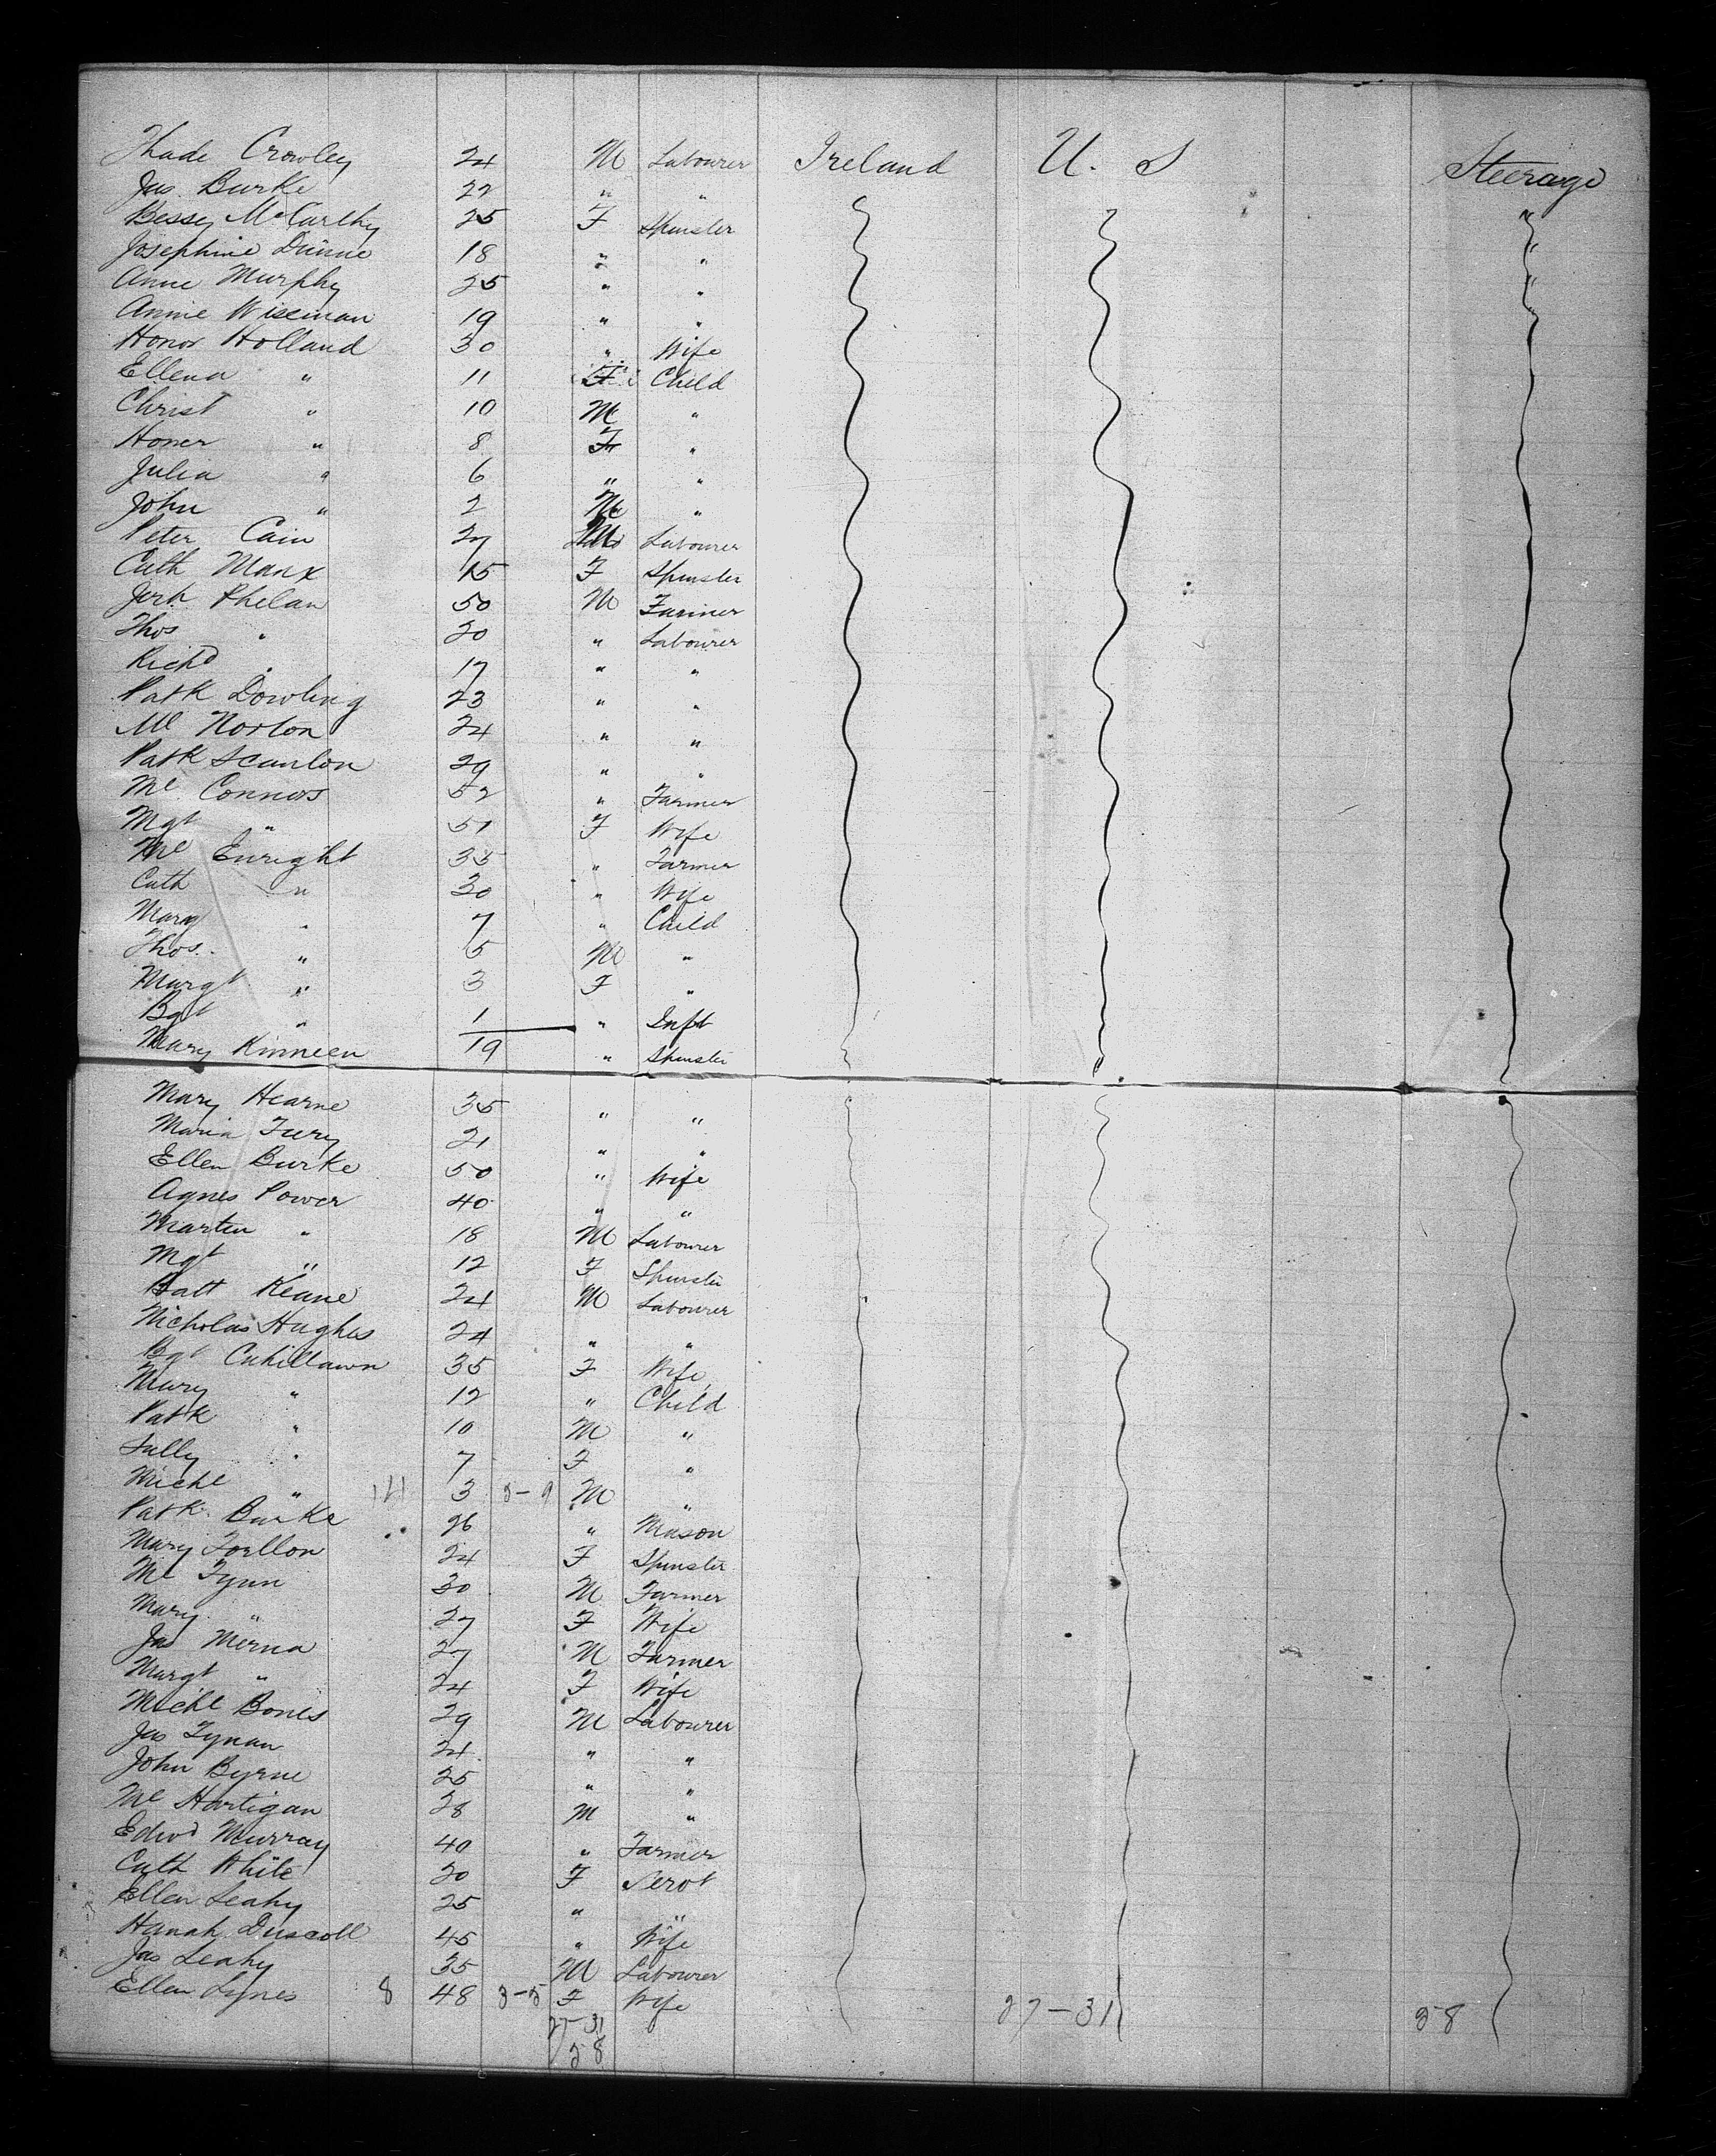 Thade Crowley 24 M Labourer Ireland U. S Steerage
Jas. Burke 22 " "
Bessey McCarthy 25 F Spinster "
Josephine Dunne 18 " " "
Anne Murphy 25 " " "
Annie Wiseman 19 " " "
Honor Holland 30 " Wife
Ellena " 11 F Child
Christ " 10 M "
Honer " 8 F "
Julia " 6 " "
John " 2 M "
Peter Cain 27 M Labourer
Cath Manx 15 F Spinster
Jerh Phelan 50 M Farmer
Thos " 20 " Labourer
Richd " 17 " "
Patk Dowling 23 " "
Ml Norton 24 " "
Patk Scanlon 29 " "
Ml Connors 52 " Farmer
Mgt " 51 F Wife
Ml Enright 35 " Farmer
Cath " 30 " Wife
Mary " 7 " Child
Thos. " 5 M "
Margt " 3 F "
Bgt " 1 " Inft
Mary Kinneen 19 " Spinster
Mary Hearne 35 " "
Maria Fury 21 " "
Ellen Burke 50 " Wife
Agnes Power 40 " "
Martin " 18 M Labourer
Mgt " 12 F Spinster
Batt Keane 24 M Labourer
Nicholas Hughes 24 " "
Bgt Cuhillawn 35 F Wife
Mary " 12 " Child
Patk " 10 M "
Sally " 7 F "
Michl " 3 M "
Patk. Burke 26 " Mason
Mary 24 F Spinster
Ml Fynn 30 M Farmer
Mary " 27 F Wife
Jas Merna 27 M Farmer
Margt " 24 F Wife
Michl Bones 29 M Labourer
Jas Tynan 24 " "
John Byrne 25 " "
Ml Hartigan 28 M "
Edwd Murray 40 " Farmer
Cath White 20 F Servt
Ellen Leahy 25 " "
Hanah Driscoll 45 " Wife
Jas Leahy 35 M Labourer
Ellen Lynes 8 48 3-5 F Wife 27-31 58
27-31
58